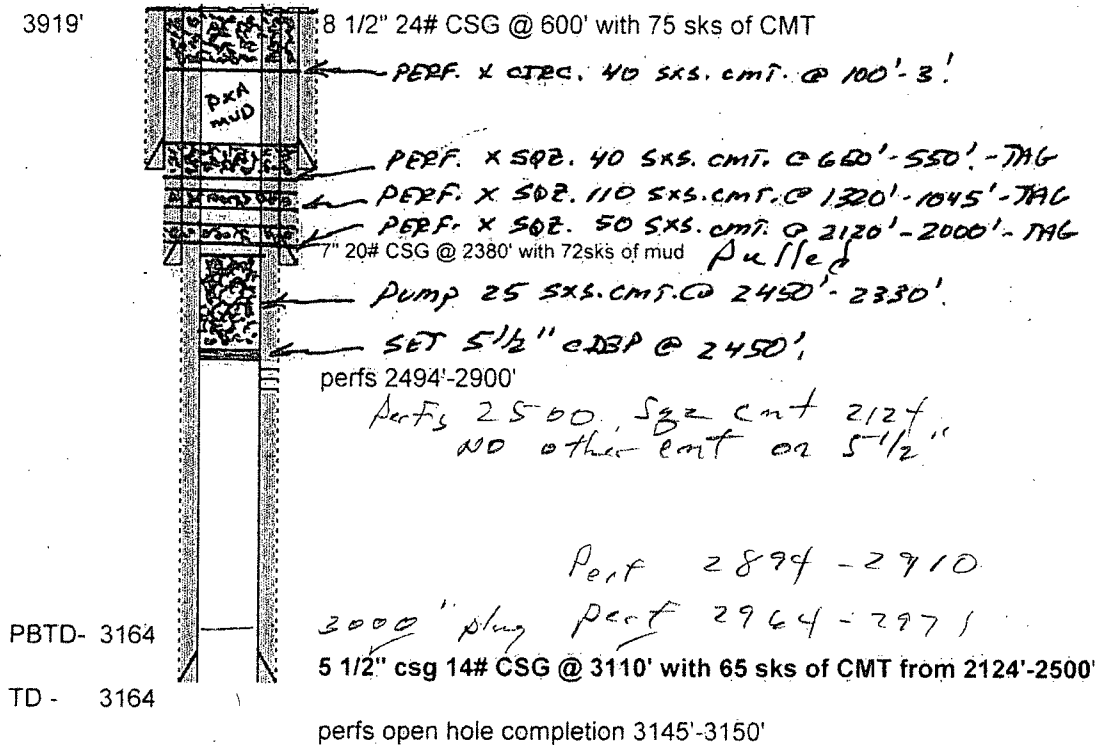 3919'
8 1/2" 24# CSG @ 600' with 75 sks of CMT
PERF. X CIRC. 40 SXS. CMT. @ 100'-3'.
PXA MUD
PERF. X SQZ. 40 SXS. CMT. @ 650'-550'.-TAG
PERF. X SQZ. 110 SXS. CMT. @ 1320'-1045'-TAG
PERF. X SQZ. 50 SXS. CMT. @ 2120'-2000'-TAG
7" 20# CSG @ 2380' with 72sks of mud Pulled
Pump 25 SXS. CMT. @ 2450'-2330'.
SET 5 1/2" CIBP @ 2450'.
perfs 2494'-2900'
Perfs 2500 Sqz cmt 2124
NO other cmt on 5 1/2"
Perf 2894-2910
PBTD- 3164
3000' plug perf 2964-2971
5 1/2" csg 14# CSG @ 3110' with 65 sks of CMT from 2124'-2500'
TD - 3164
perfs open hole completion 3145'-3150'